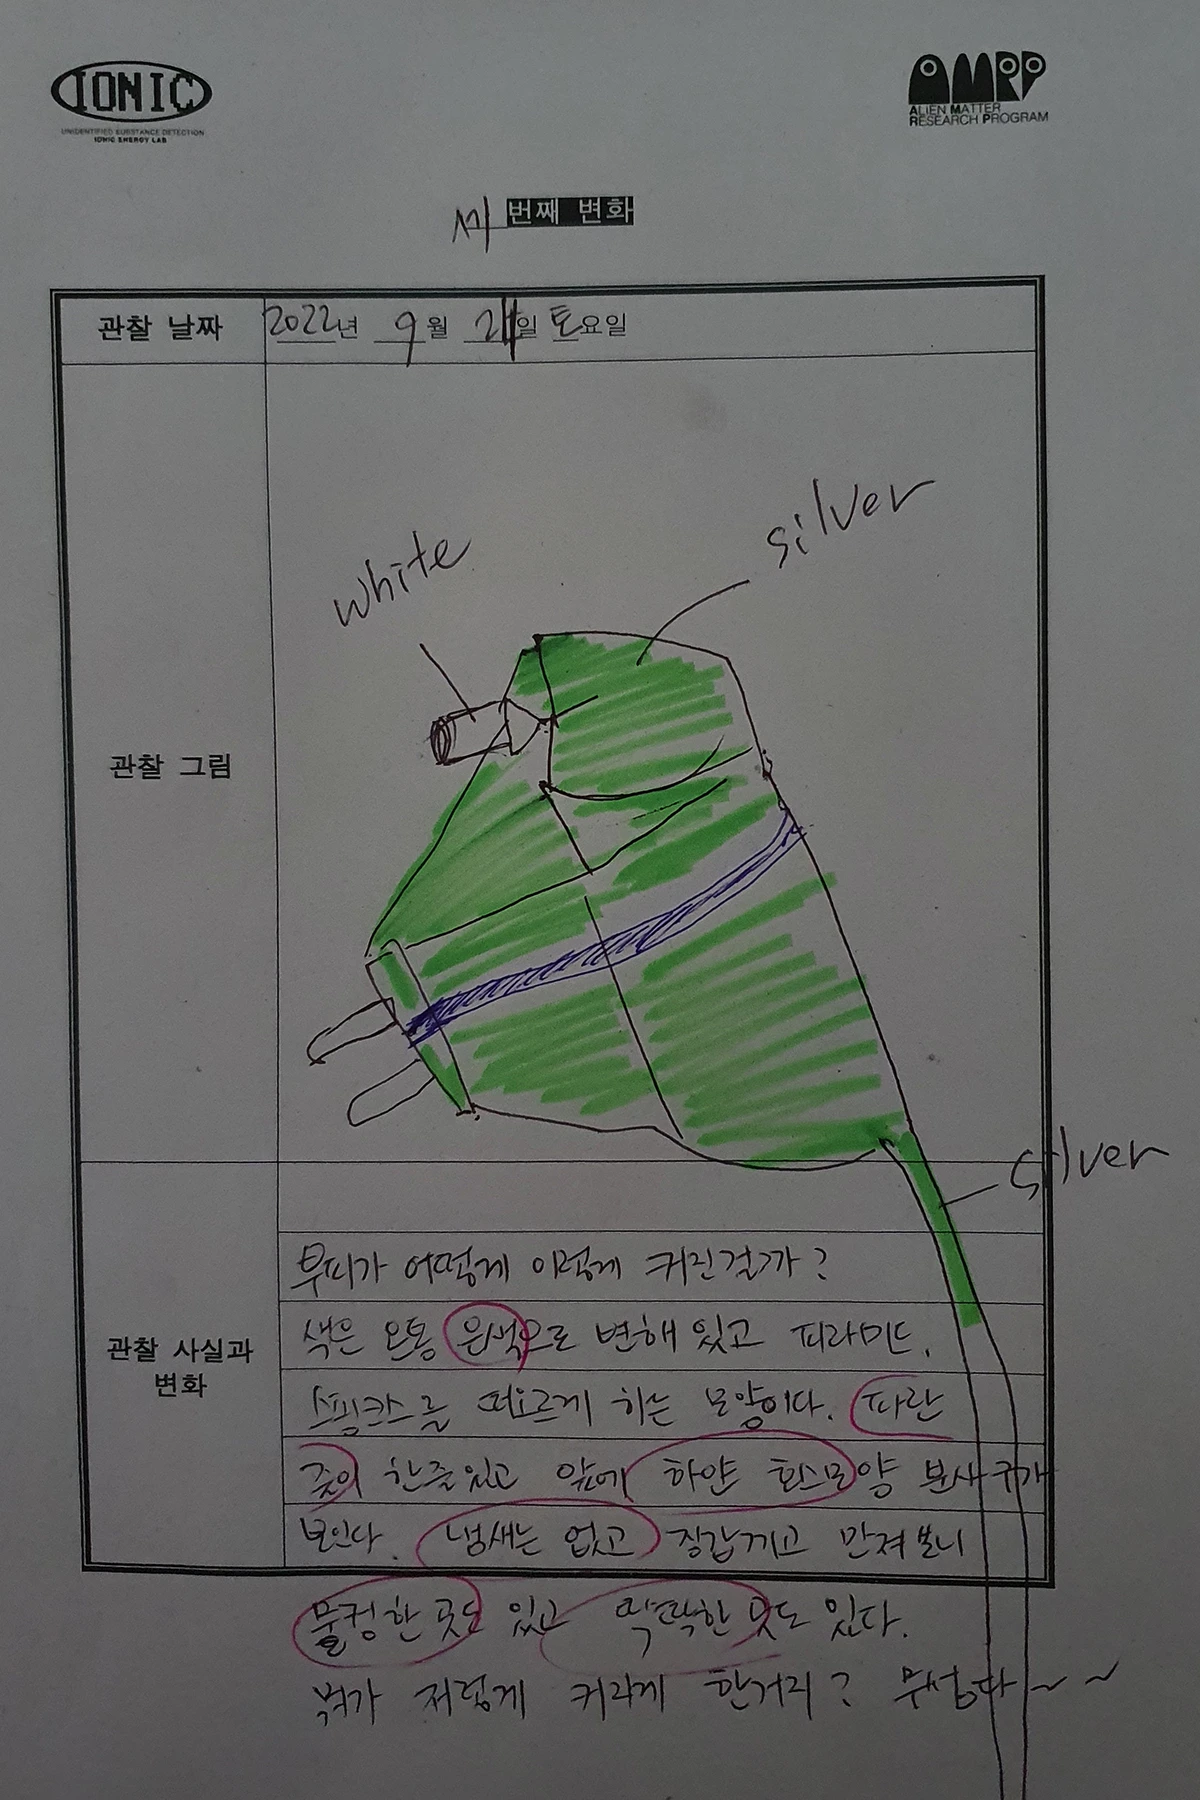 IONIC
UNIDENTIFIED SUBSTANCE DETECTION
IONIC ENERGY LAB
AMRP
ALIEN MATTER
RESEARCH PROGRAM
세 번째 변화
관찰 날짜 2022년 9월 24일 토요일
silver
white
관찰 그림
silver
관찰 사실과
변화
부피가 어떻게 이렇게 커진걸까?
색은 온통 은색으로 변해 있고 피라미드,
스핑크스를 떠오르게 하는 모양이다. 파란
줄이 한줄있고 앞에 하얀 호스모양 분사구가
보인다. 냄새는 없고 장갑끼고 만져보니
물컹한 곳도 있고 딱딱한 곳도 있다.
뭐가 저렇게 커지게 한거지? 무섭다~~